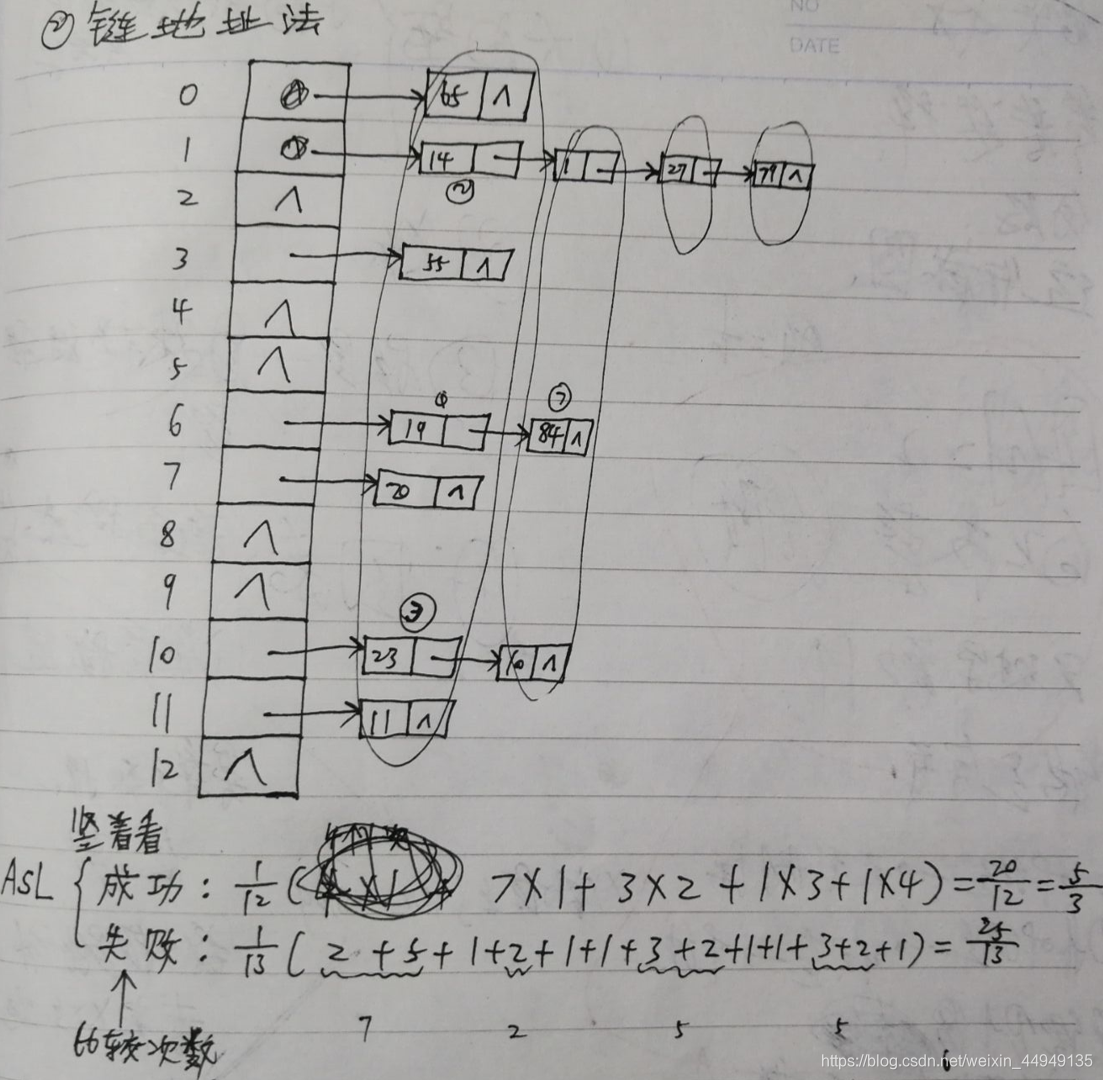 ② 链地址法
NO
DATE
0 65 ∧
1 14 1 27 79 ∧
②
2 ∧
3 55 ∧
4 ∧
5 ∧
⑦
6 19 84 ∧
7 20 ∧
8 ∧
9 ∧
③
10 23 10 ∧
11 11 ∧
12 ∧
竖着看
ASL
成功: 1/12 ( 7×1 + 3×2 + 1×3 + 1×4) = 20/12 = 5/3
失败: 1/13 ( 2 + 5 + 1 + 2 + 1 + 1 + 3 + 2 + 1 + 1 + 3 + 2 + 1) = 25/13
比较次数
7 2 5 5
https://blog.csdn.net/weixin_44949135